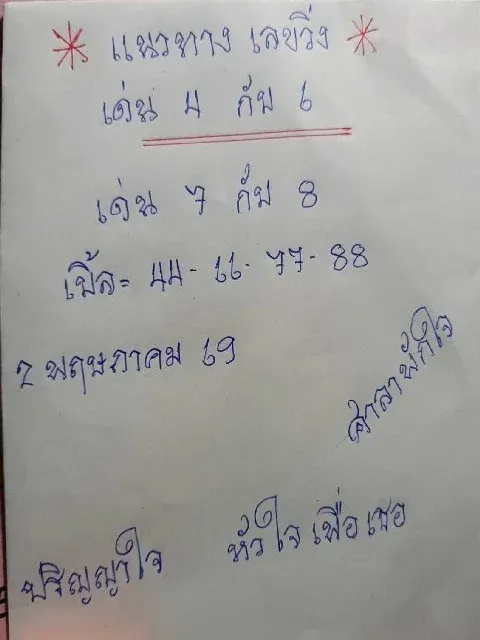 แนวทาง เลขวิ่ง
เด่น 4 กับ 6
เด่น 7 กับ 8
เบิ้ล = 44-66-77-88
2 พฤษภาคม 69
ศาลาพักใจ
ปริญญาใจ หัวใจเพื่อเธอ